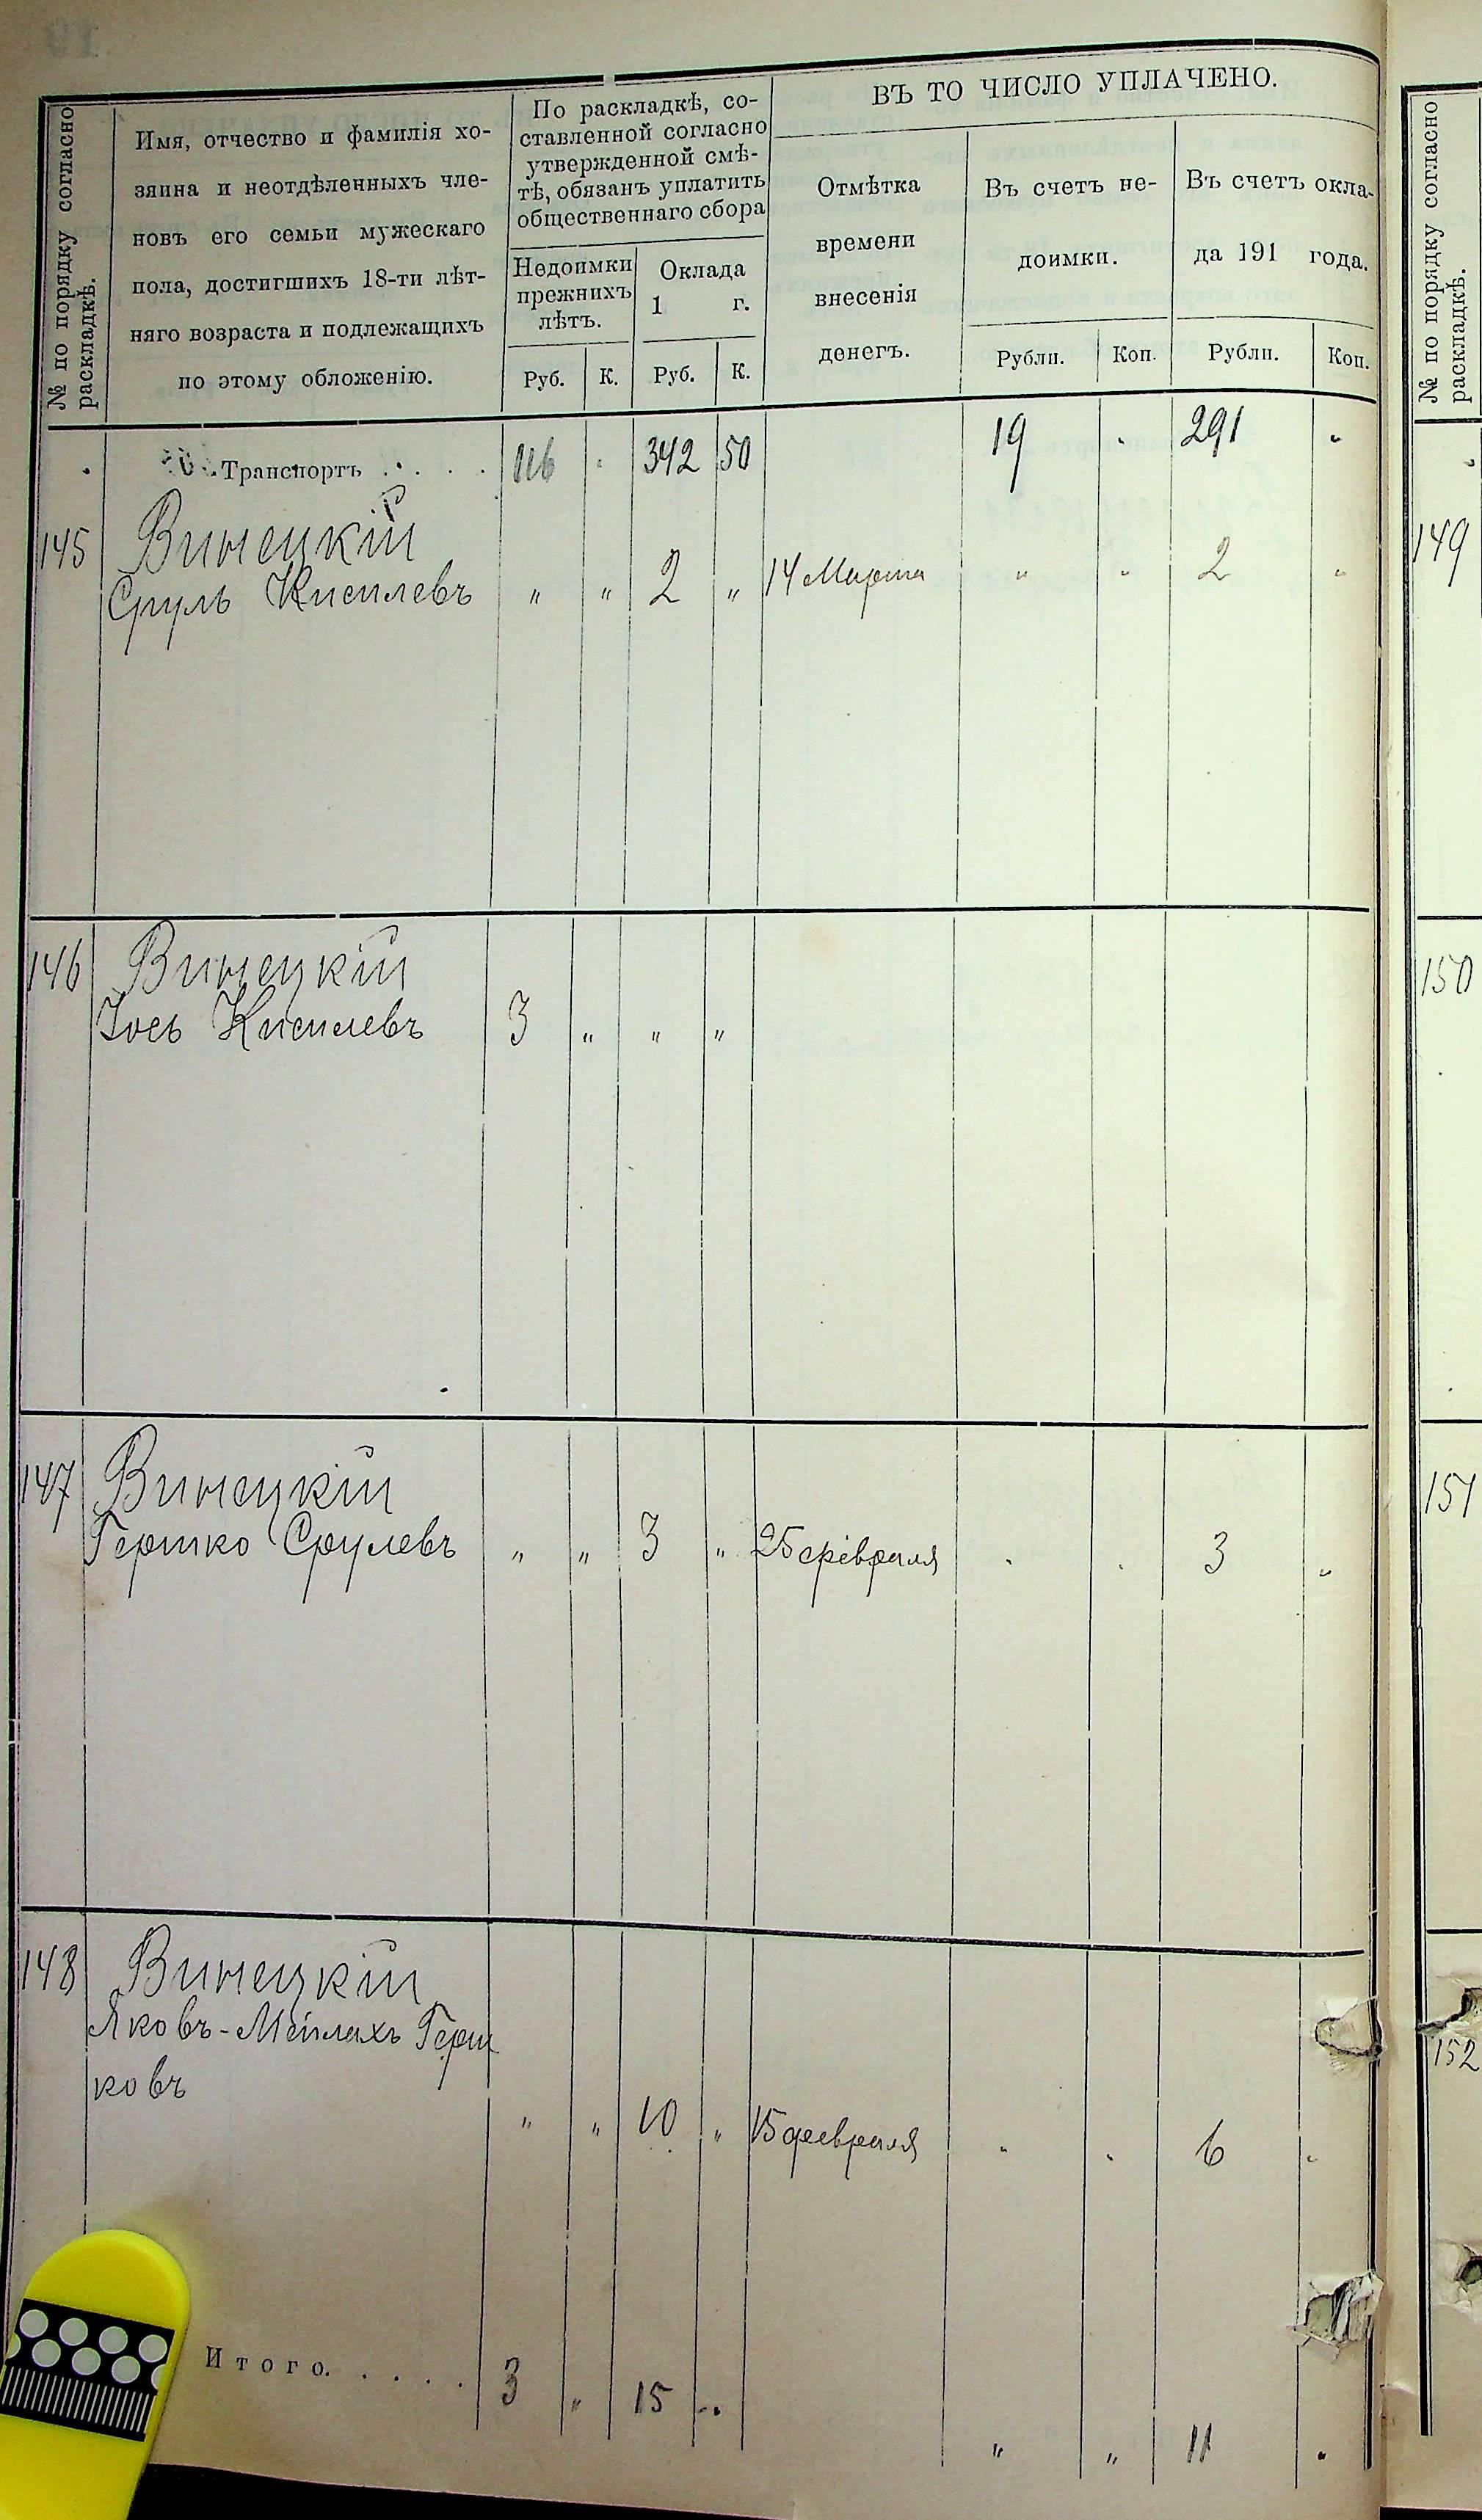 № по порядку согласно
раскладкѣ.
Имя, отчество и фамилія хо-
зяина и неотдѣленныхъ чле-
новъ его семьи мужескаго
пола, достигшихъ 18-ти лѣт-
няго возраста и подлежащихъ
по этому обложенію.
По раскладкѣ, со-
ставленной согласно
утвержденной смѣ-
тѣ, обязанъ уплатить
общественнаго сбора
Недоимки
прежнихъ
лѣтъ.
Оклада
1 г.
Руб. К. Руб. К.
ВЪ ТО ЧИСЛО УПЛАЧЕНО.
Отмѣтка
времени
внесенія
денегъ.
Въ счетъ не-
доимки.
Рубли. Коп.
Въ счетъ окла-
да 191 года.
Рубли. Коп.
Транспортъ . . . . 116 " 342 50 19 " 291 "
145 Винецкій
Сруль Кисилевъ " " 2 " 14 Марта " " 2 "
146 Винецкій
Іось Кисилевъ 3 " " "
147 Винецкій
Гершко Срулевъ " " 3 " 25 февраля " " 3 "
148 Винецкій
Яковъ-Мейлахъ Герш
ковъ
" " 10 " 15 февраля " " 6 "
Итого. . . . . 3 " 15 "
" " 11 "
№ по порядку согласно
раскладкѣ.
149
150
151
152